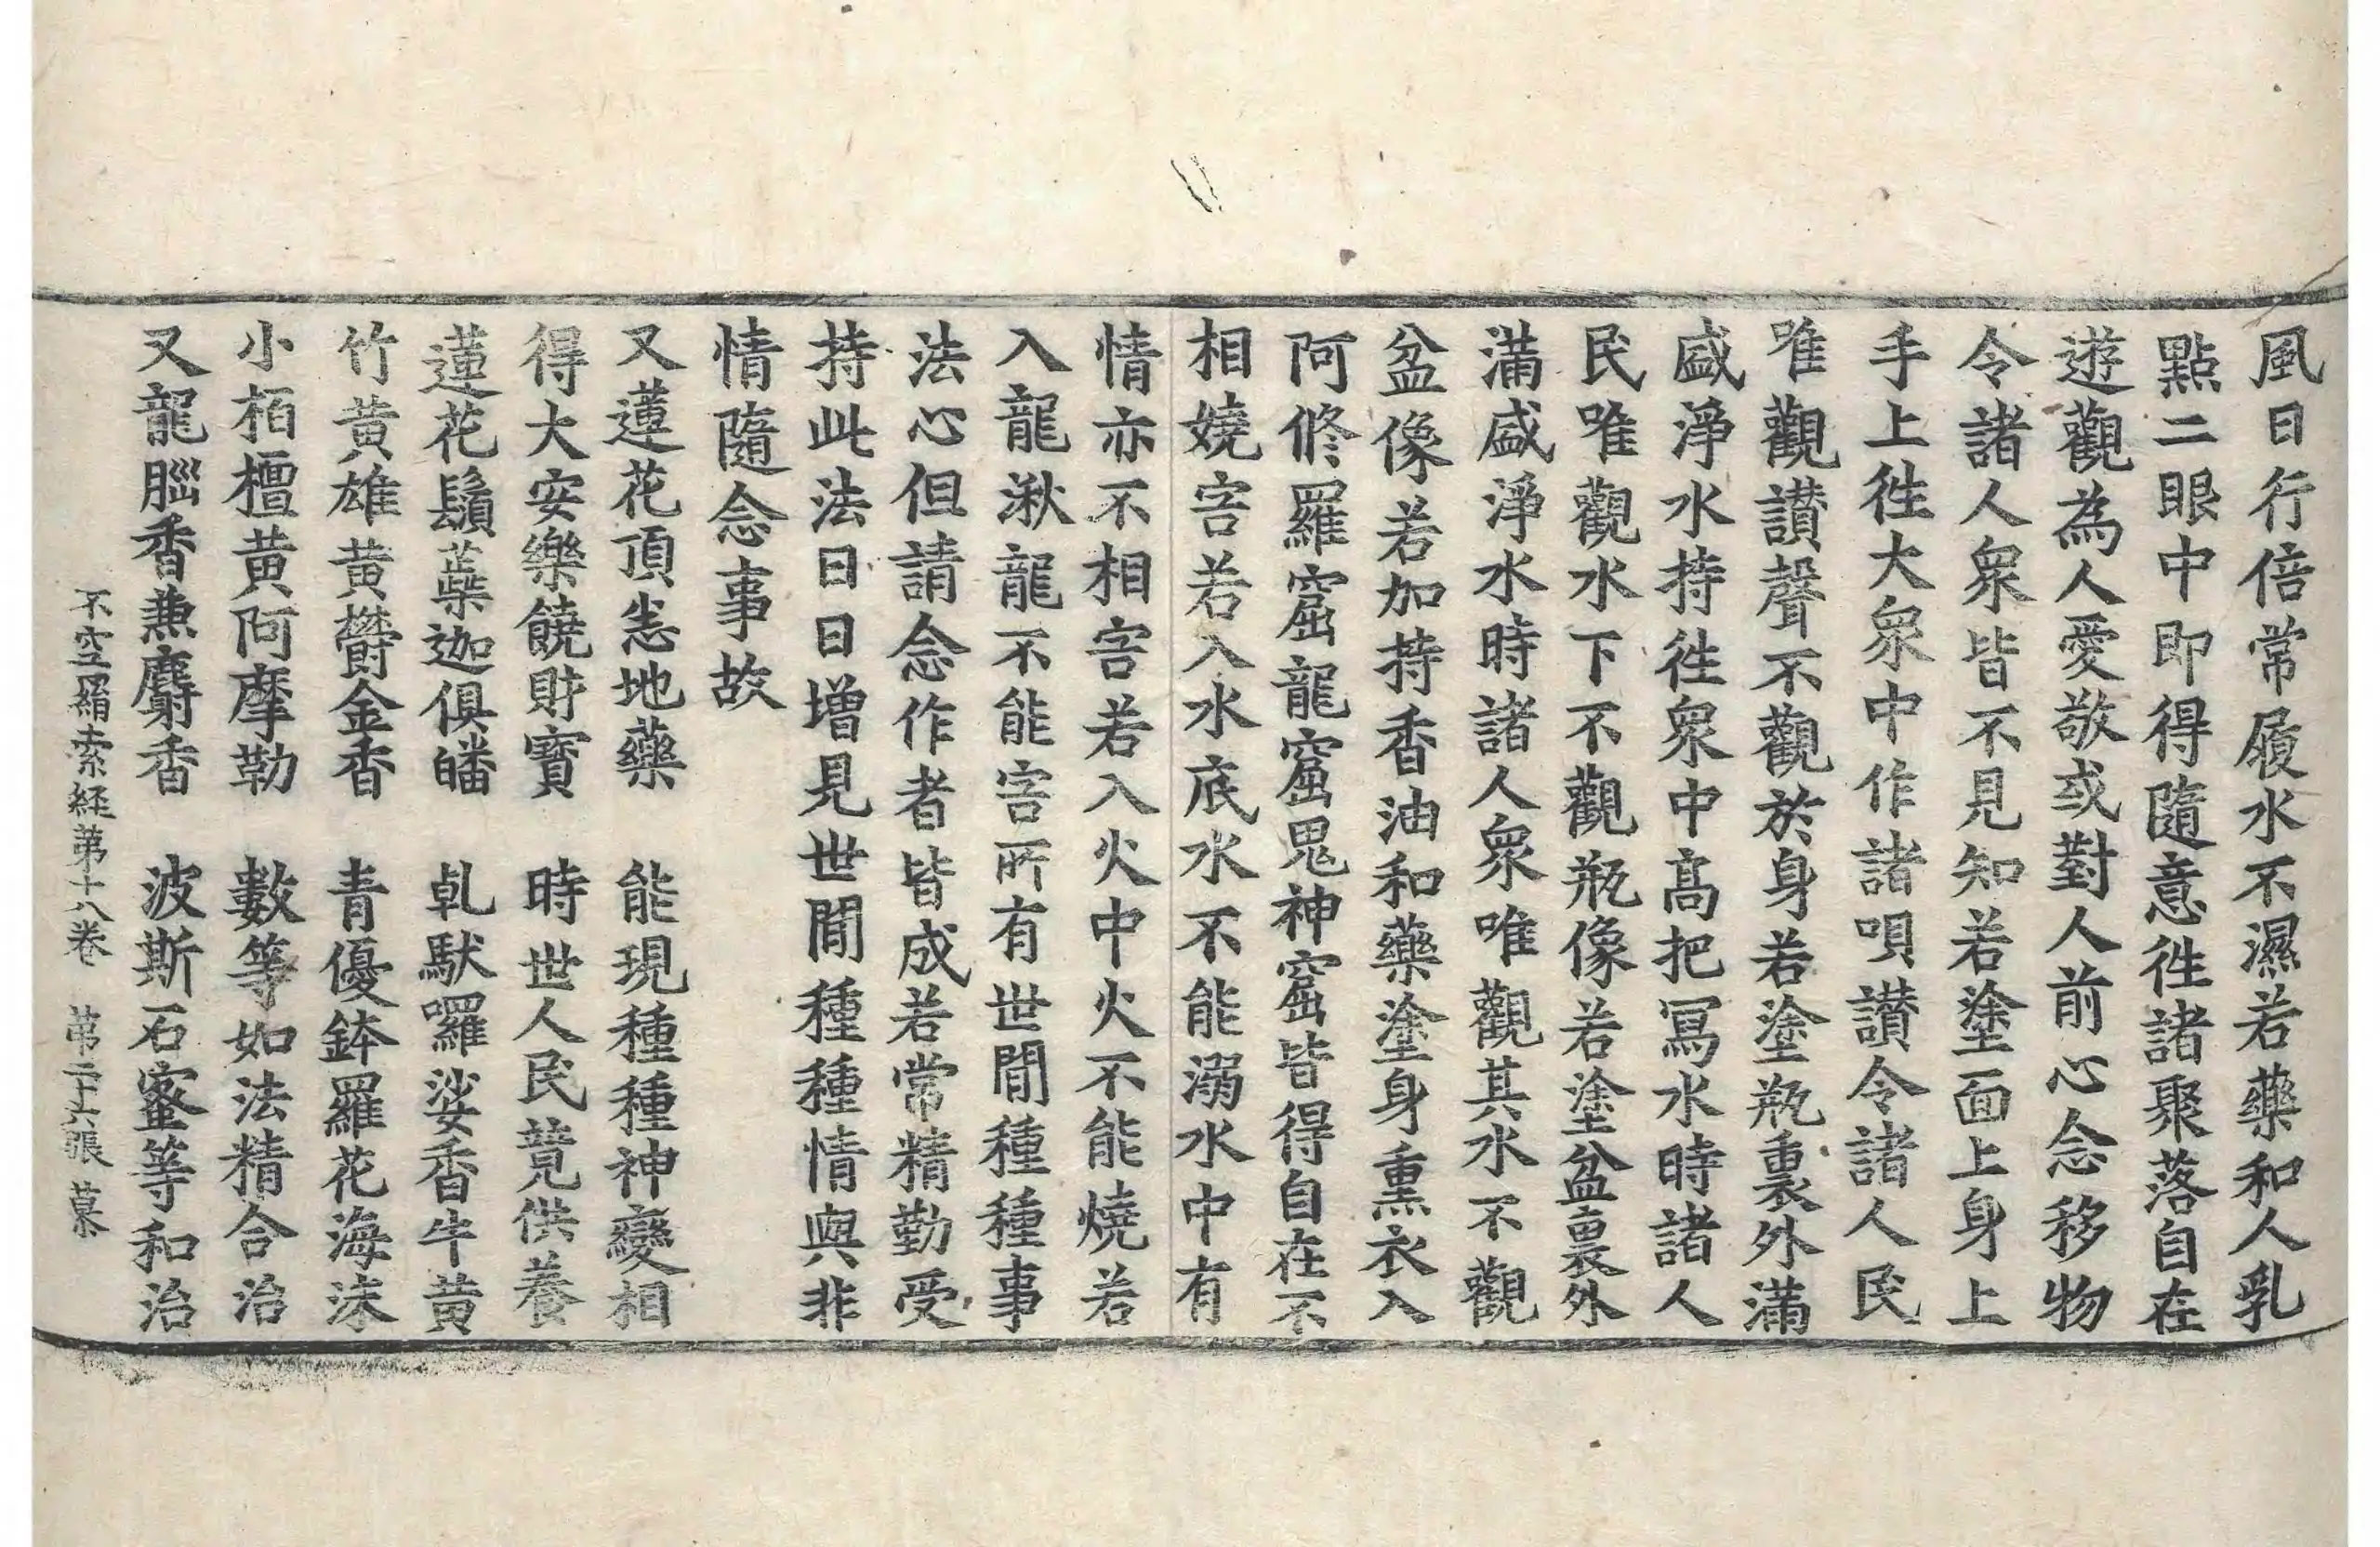 風日行倍常履水不濕若藥和人乳
點二眼中即得隨意徃諸聚落自在
遊觀為人愛敬或對人前心念移物
令諸人衆皆不見知若塗面上身上
手上徃大衆中作諸唄讃令諸人民
唯觀讃聲不觀於身若塗瓶裏外滿
盛淨水持徃衆中高把冩水時諸人
民唯觀水下不觀瓶像若塗盆裏外
滿盛淨水時諸人衆唯觀其水不觀
盆像若加持香油和藥塗身熏衣入
阿修羅窟龍窟鬼神窟皆得自在不
相嬈害若入水底水不能溺水中有
情亦不相害若入火中火不能燒若
入龍湫龍不能害所有世間種種事
法心但請念作者皆成若常精勤受
持此法日日增見世間種種情與非
情隨念事故
又蓮花頂恙地藥　能現種種神變相
得大安樂饒財寶　時世人民競供養
蓮花鬚蘂迦俱皤　乹馱囉娑香牛黄
竹黄雄黄欝金香　青優鉢羅花海沫
小栢檀黄阿摩勒　數等如法精合治
又龍腦香兼麝香　波斯石蜜等和治
不空羂索経第十八卷　第二十六張　慕